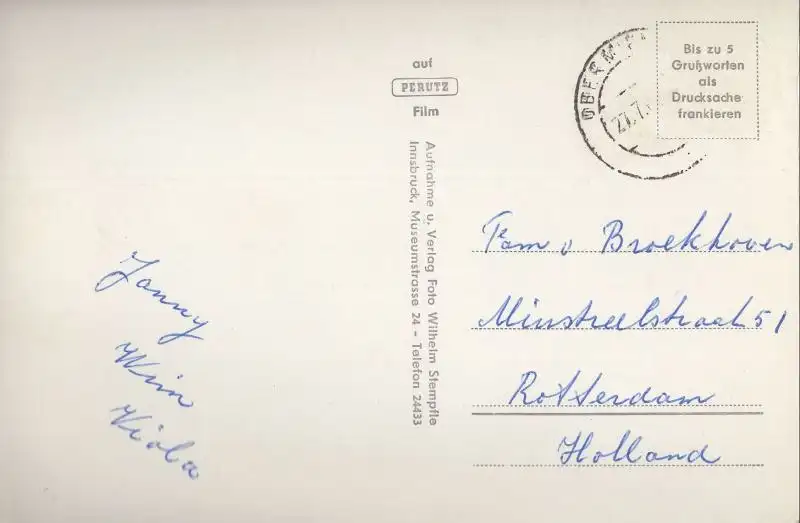 auf
PERUTZ
Film
Bis zu 5
Grußworten
als
Drucksache
frankieren
27.7.
Aufnahme u. Verlag Foto Wilhelm Stempfle
Innsbruck, Museumstrasse 24 - Telefon 24433
Fam v Broekhoven
Minstreelstraat 51
Rotterdam
Holland
Janny
Wim
Viola